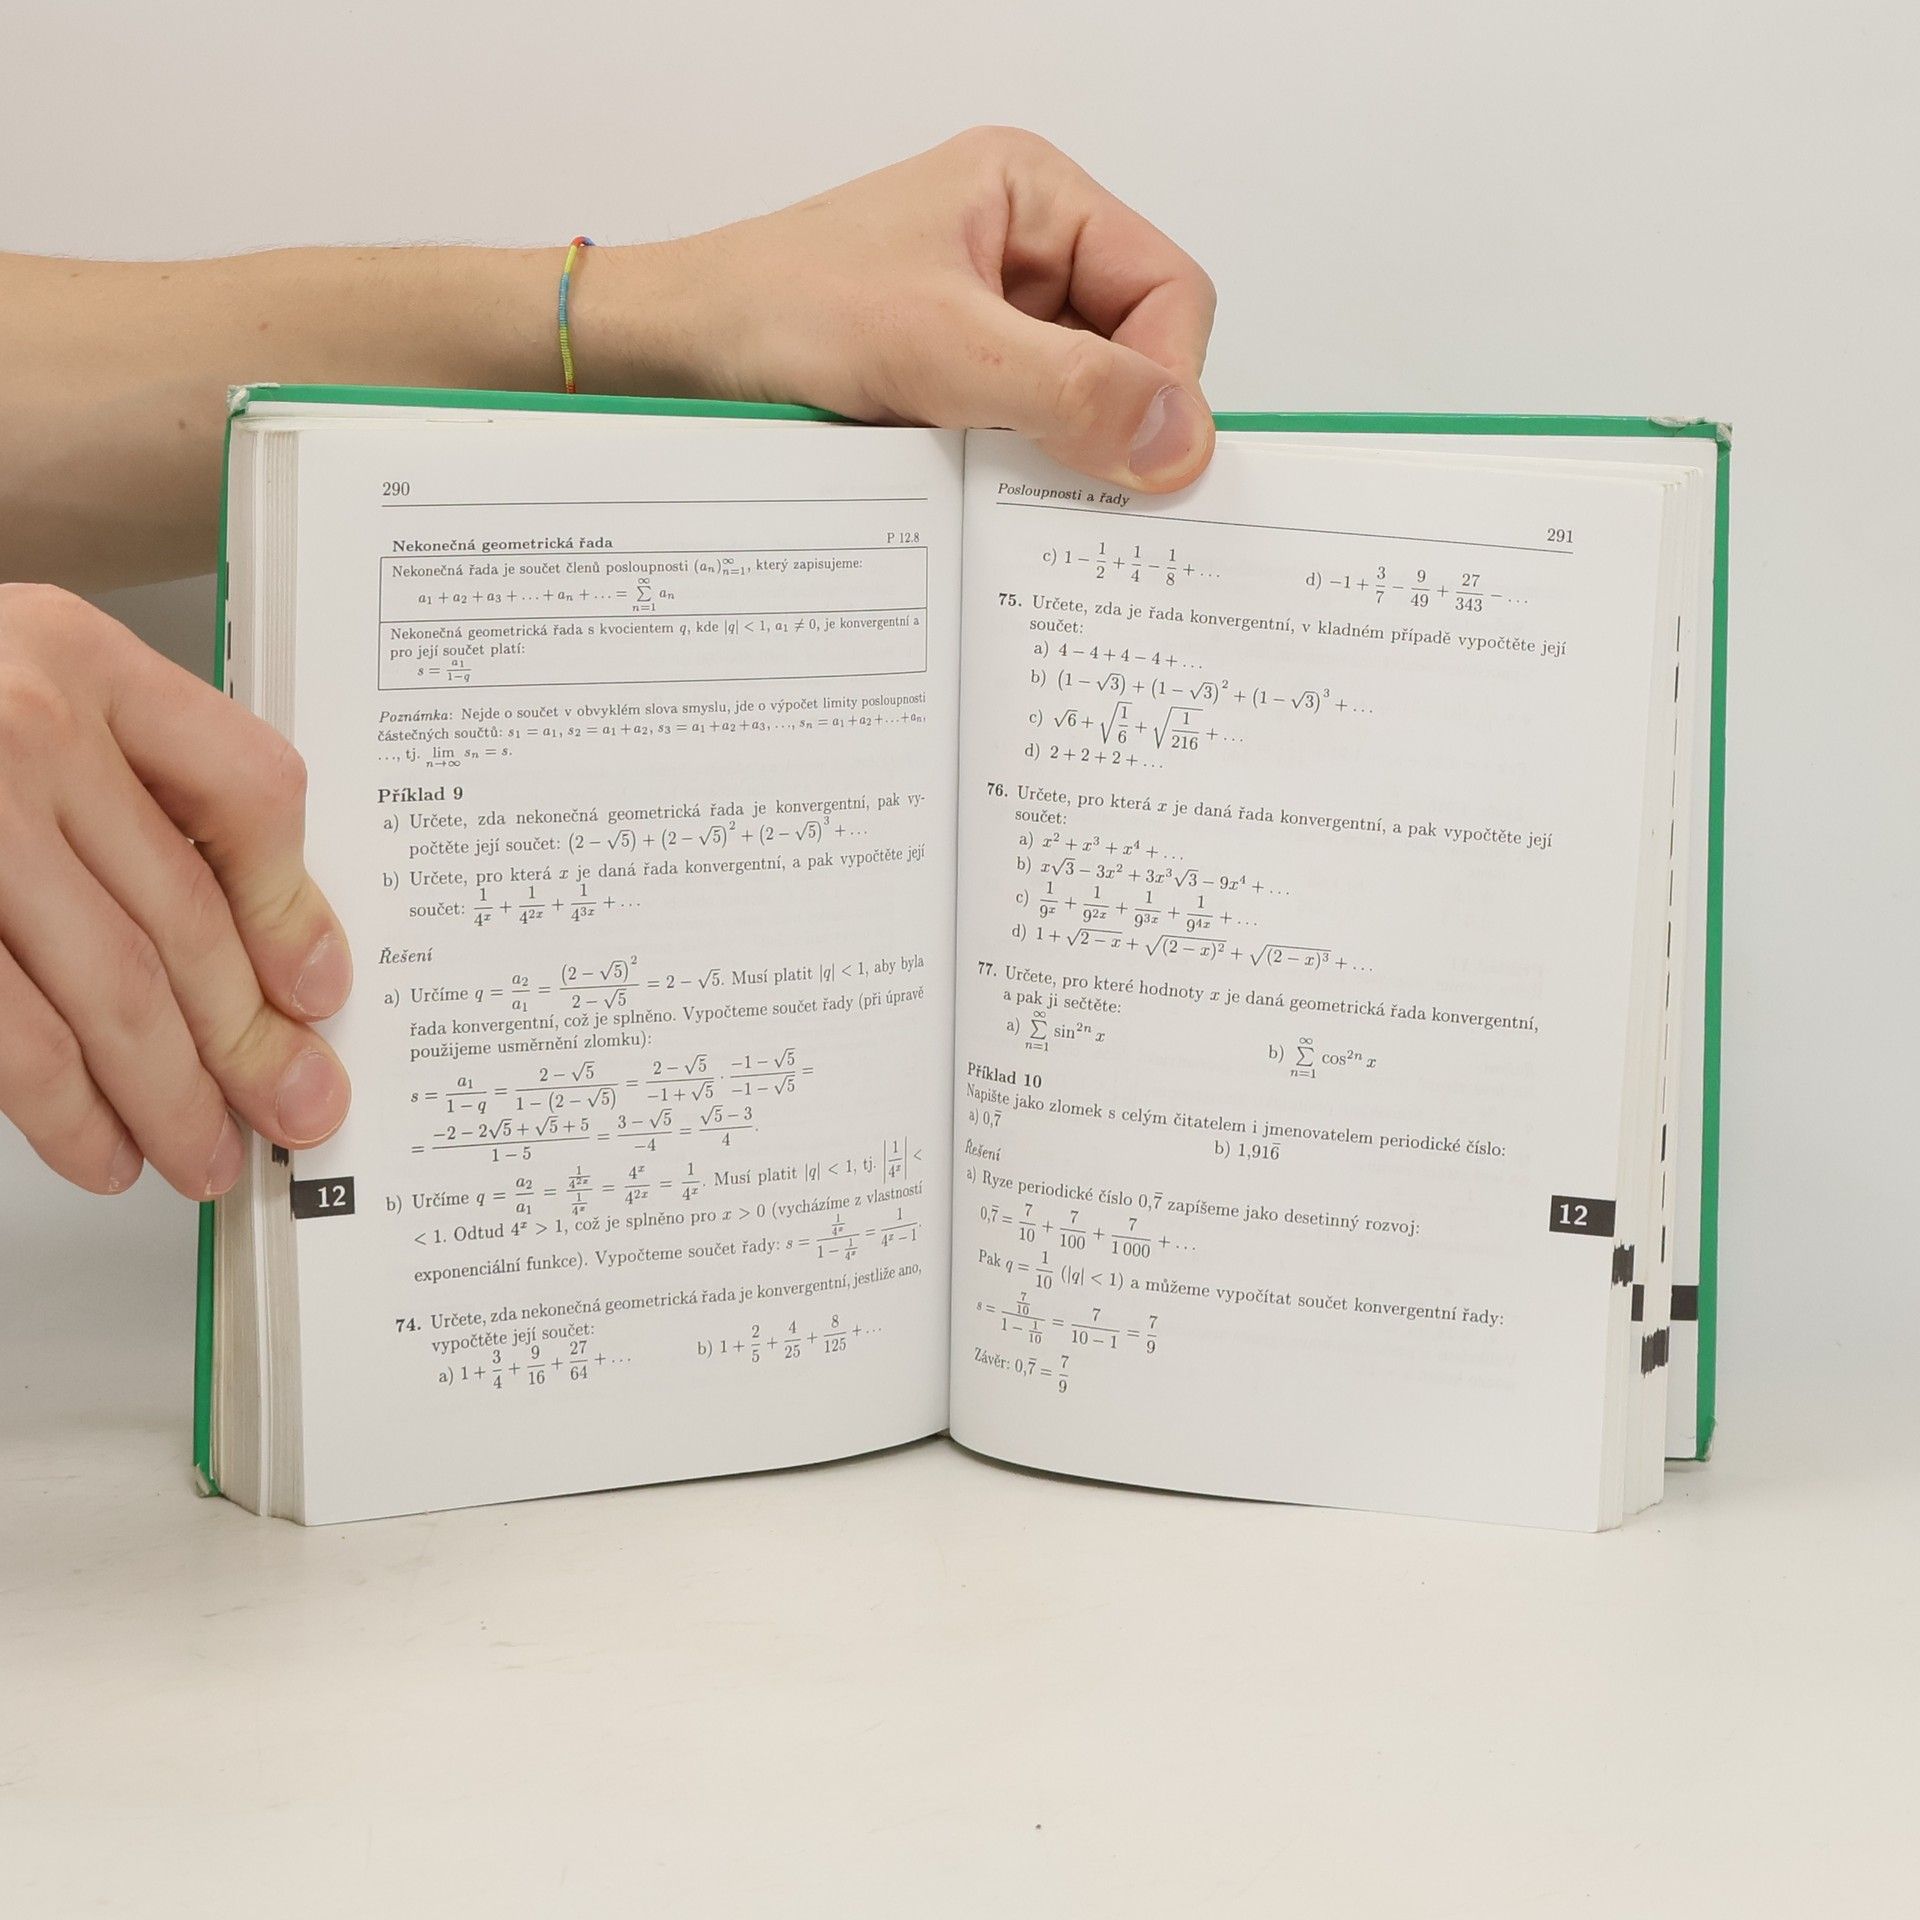 290
Nekonečná geometrická řada P 12.8
Nekonečná řada je součet členů posloupnosti (aₙ)ₙ₌₁^∞, který zapisujeme:
a₁ + a₂ + a₃ + … + aₙ + … = ∑_{n=1}^{∞} aₙ
Nekonečná geometrická řada s kvocientem q, kde |q| < 1, a₁ ≠ 0, je konvergentní a
pro její součet platí:
s = a₁/(1−q)
Poznámka: Nejde o součet v obvyklém slova smyslu, jde o výpočet limity posloupnosti
částečných součtů: s₁ = a₁, s₂ = a₁ + a₂, s₃ = a₁ + a₂ + a₃, …, sₙ = a₁ + a₂ + … + aₙ,
…, tj. lim_{n→∞} sₙ = s.
Příklad 9
a) Určete, zda nekonečná geometrická řada je konvergentní, pak vy-
počtěte její součet: (2 − √5) + (2 − √5)² + (2 − √5)³ + …
b) Určete, pro která x je daná řada konvergentní, a pak vypočtěte její
součet: 1/4ˣ + 1/4²ˣ + 1/4³ˣ + …
Řešení
a) Určíme q = a₂/a₁ = (2 − √5)²/(2 − √5) = 2 − √5. Musí platit |q| < 1, aby byla
řada konvergentní, což je splněno. Vypočteme součet řady (při úpravě
použijeme usměrnění zlomku):
s = a₁/(1 − q) = (2 − √5)/(1 − (2 − √5)) = (2 − √5)/(−1 + √5) · (−1 − √5)/(−1 − √5) =
= (−2 − 2√5 + √5 + 5)/(1 − 5) = (3 − √5)/(−4) = (√5 − 3)/4.
b) Určíme q = a₂/a₁ = (1/4²ˣ)/(1/4ˣ) = 4ˣ/4²ˣ = 1/4ˣ. Musí platit |q| < 1, tj. |1/4ˣ| <
< 1. Odtud 4ˣ > 1, což je splněno pro x > 0 (vycházíme z vlastností
exponenciální funkce). Vypočteme součet řady: s = (1/4ˣ)/(1 − 1/4ˣ) = 1/(4ˣ − 1).
74. Určete, zda nekonečná geometrická řada je konvergentní, jestliže ano,
vypočtěte její součet:
a) 1 + 3/4 + 9/16 + 27/64 + … b) 1 + 2/5 + 4/25 + 8/125 + …
12
Posloupnosti a řady 291
c) 1 − 1/2 + 1/4 − 1/8 + … d) −1 + 3/7 − 9/49 + 27/343 − …
75. Určete, zda je řada konvergentní, v kladném případě vypočtěte její
součet:
a) 4 − 4 + 4 − 4 + …
b) (1 − √3) + (1 − √3)² + (1 − √3)³ + …
c) √6 + √(1/6) + √(1/216) + …
d) 2 + 2 + 2 + …
76. Určete, pro která x je daná řada konvergentní, a pak vypočtěte její
součet:
a) x² + x³ + x⁴ + …
b) x√3 − 3x² + 3x³√3 − 9x⁴ + …
c) 1/9ˣ + 1/9²ˣ + 1/9³ˣ + 1/9⁴ˣ + …
d) 1 + √(2 − x) + √((2 − x)²) + √((2 − x)³) + …
77. Určete, pro které hodnoty x je daná geometrická řada konvergentní,
a pak ji sečtěte:
a) ∑_{n=1}^{∞} sin²ⁿ x b) ∑_{n=1}^{∞} cos²ⁿ x
Příklad 10
Napište jako zlomek s celým čitatelem i jmenovatelem periodické číslo:
a) 0,7̅ b) 1,916̅
Řešení
a) Ryze periodické číslo 0,7̅ zapíšeme jako desetinný rozvoj:
0,7̅ = 7/10 + 7/100 + 7/1 000 + …
Pak q = 1/10 (|q| < 1) a můžeme vypočítat součet konvergentní řady:
s = (7/10)/(1 − 1/10) = 7/(10 − 1) = 7/9
Závěr: 0,7̅ = 7/9
12